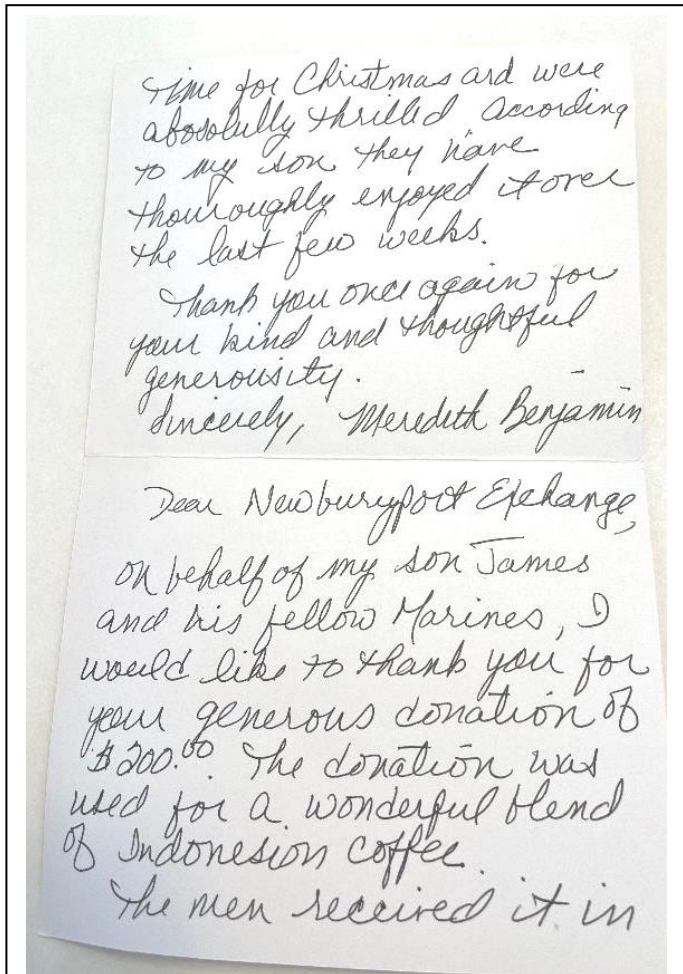 time for Christmas ard were
abosolully thrilled according
to my son they have
thouroughly enjoyed it over
the last few weeks.
Thank you once again for
your kind and thoughtful
generousity.
Sincerely, Meredith Benjamin
Dear Newburyport Exchange,
on behalf of my son James
and his fellow Marines, I
would like to thank you for
your generous donation of
$200.00. The donation was
used for a wonderful blend
of Indonesion coffee.
The men received it in